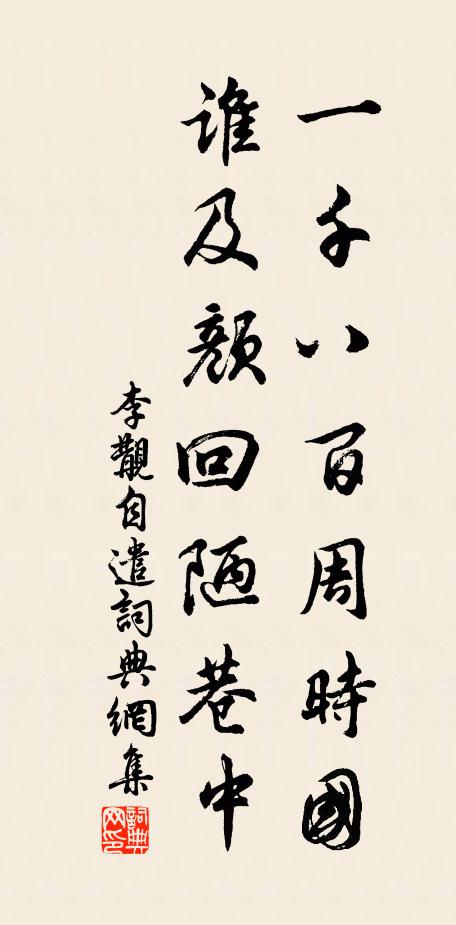 一千八百周時國
誰及顏回陋巷中
李覯自遣詞典網集
詞典網印